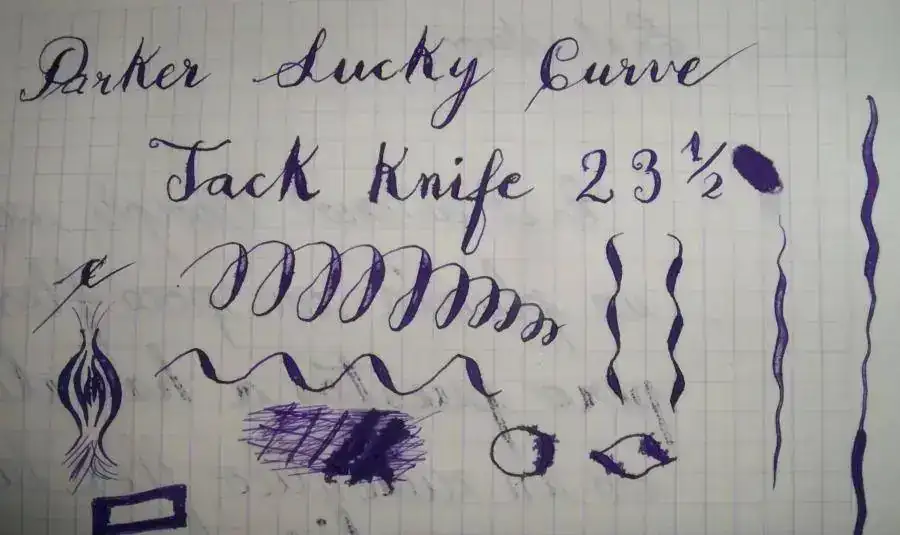 Parker Lucky Curve
Jack Knife 23 1/2